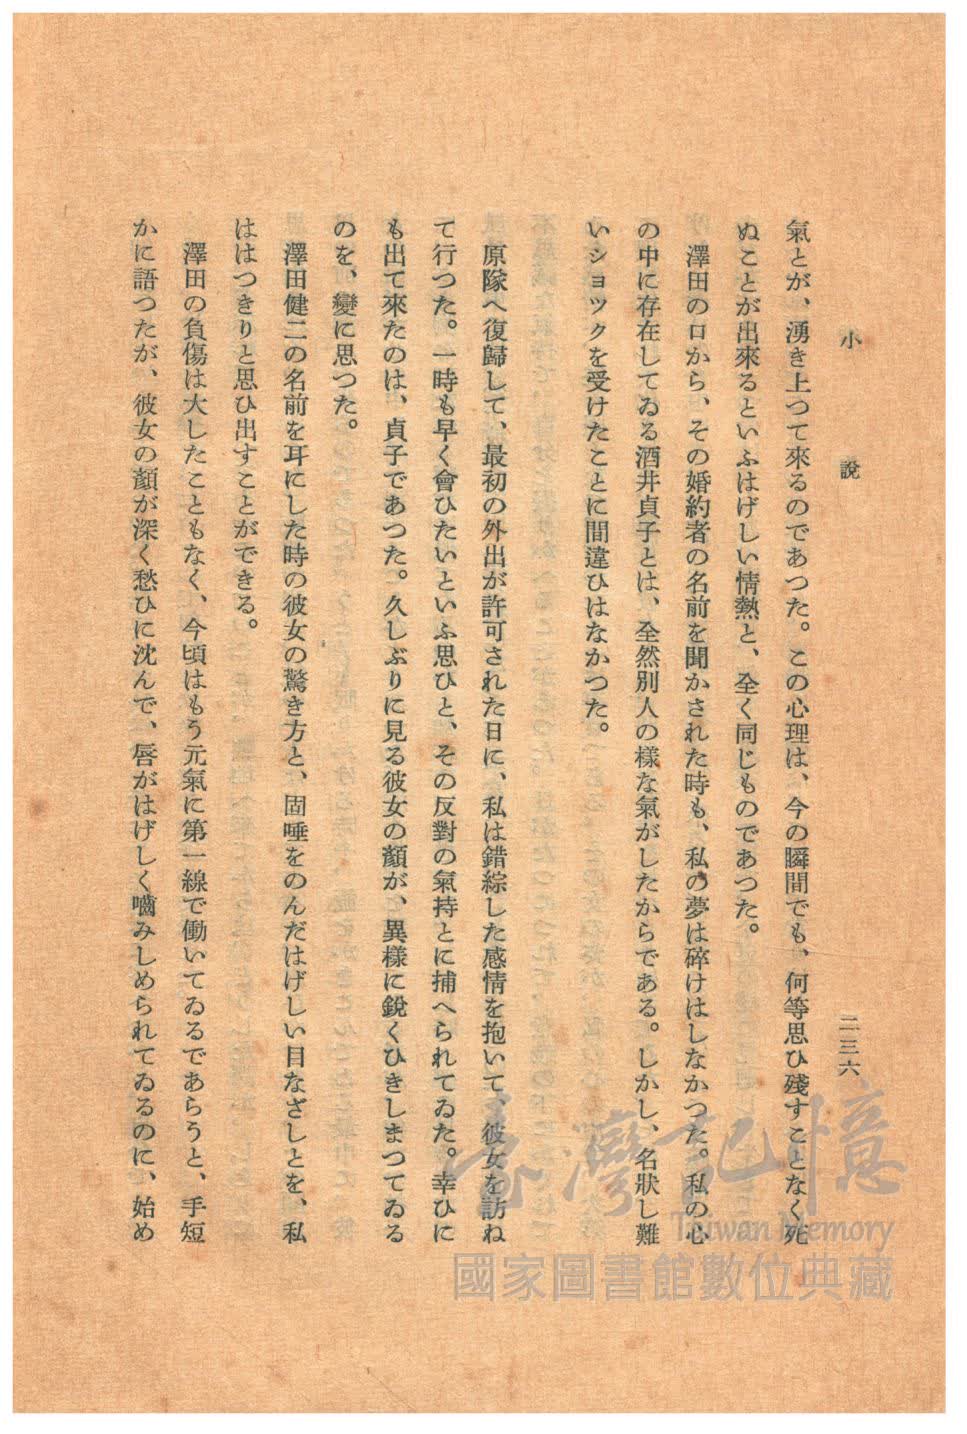 小說
二三六
氣とが、湧き上つて來るのであつた。この心理は、今の瞬間でも、何等思ひ殘すことなく死
ぬことが出來るといふはげしい情熱と、全く同じものであつた。
澤田の口から、その婚約者の名前を聞かされた時も、私の夢は碎けはしなかつた。私の心
の中に存在してゐる酒井貞子とは、全然別人の樣な氣がしたからである。しかし、名狀し難
いショックを受けたことに間違ひはなかつた。
原隊へ復歸して、最初の外出が許可された日に、私は錯綜した感情を抱いて、彼女を訪ね
て行つた。一時も早く會ひたいといふ思ひと、その反對の氣持とに捕へられてゐた。幸ひに
も出て來たのは、貞子であつた。久しぶりに見る彼女の顏が、異樣に銳くひきしまつてゐる
のを、變に思つた。
澤田健二の名前を耳にした時の彼女の驚き方と、固唾をのんだはげしい目なざしとを、私
ははつきりと思ひ出すことができる。
澤田の負傷は大したこともなく、今頃はもう元氣に第一線で働いてゐるであらうと、手短
かに語つたが、彼女の顏が深く愁ひに沈んで、唇がはげしく嚙みしめられてゐるのに、始め
臺灣記憶
Taiwan Memory
國家圖書館數位典藏